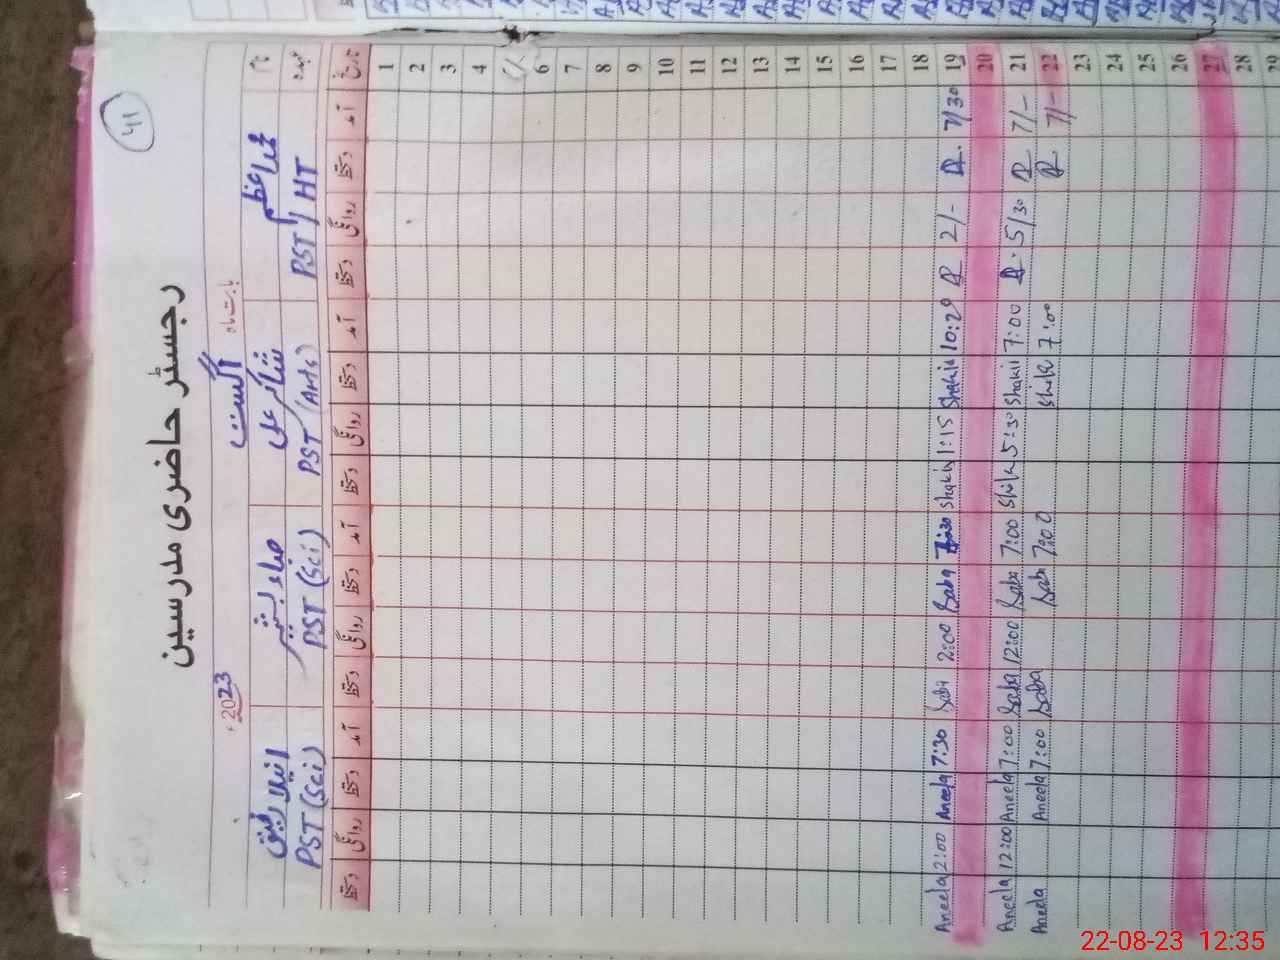 41
رجسٹر حاضری مدرسین
بابت ماہ اگست 2023ء
نام محمد اعظم شاکر علی صباء بشیر انیلا رفیق
عہدہ PST / HT PST (Arts) PST (Sci) PST (Sci)
تاریخ آمد دستخط روانگی دستخط آمد دستخط روانگی دستخط آمد دستخط روانگی دستخط آمد دستخط روانگی دستخط
1
2
3
4
6
7
8
9
10
11
12
13
14
15
16
17
18
19 7/30 2/- 10:29 Shakir 1:15 Shakir 7:30 Saba 2:00 Saba 7:30 Aneela 2:00 Aneela
20
21 7/- 5/30 7:00 Shakir 5:30 7:00 Saba 12:00 Saba 7:00 Aneela 12:00 Aneela
22 7/- 7:00 7:00 Saba Saba 7:00 Aneela Aneela
23
24
25
26
27
28
29
22-08-23 12:35